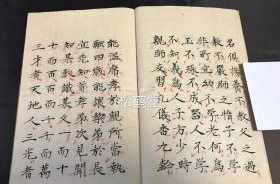 名俱揚養不教父之過
教不嚴師之惰子不學
非所宜幼不學老何為
玉不琢不成器人不學
不知義為人子方少時
親師友習禮儀香九齡
能溫席孝於親所當執
融四歲能讓梨弟於長
宜先知首孝弟次見聞
知某數識某文一而十
十而百百而千千而萬
三才者天地人三光者